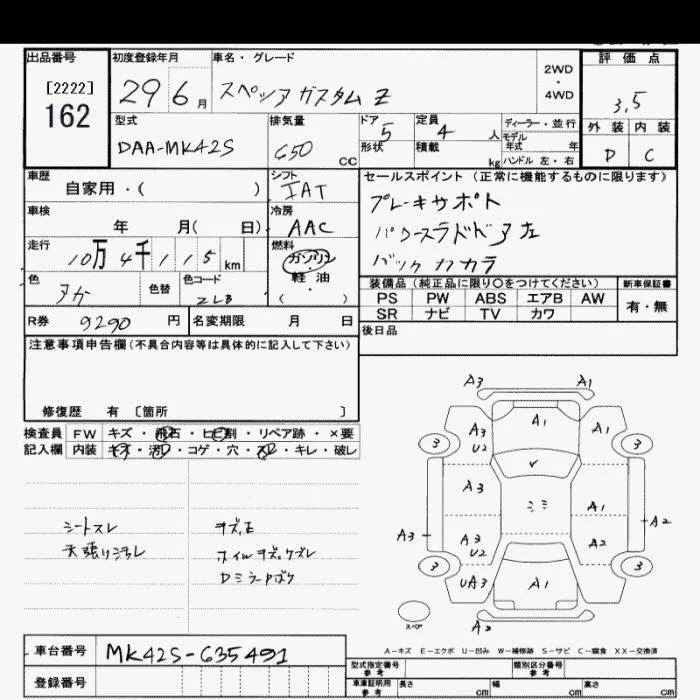 出品番号
[2222]
162
初度登録年月
29 6 月
車名・グレード
スペツア カスタム Z
2WD
・
4WD
評価点
3,5
外装 内装
D C
型式
DAA-MK42S
排気量
650 CC
ドア 5
形状
定員 4 人
積載 kg
ディーラー・並行
モデル
年式 年
ハンドル 左・右
車歴
自家用・( )
シフト
IAT
車検
年 月( 日)
冷房
AAC
走行
10万 4千 1 1 5 km
燃料
ガソリン
・
軽・油
( )
色
アカ
色替
色コード
ZLB
R券 9290 円
名変期限 月 日
セールスポイント (正常に機能するものに限ります)
ブレーキサポート
パワースラドドア左
バックカカラ
装備品(純正品に限り○をつけてください)
新車保証書
PS PW ABS エアB AW
SR ナビ TV カワ
有・無
後日品
注意事項申告欄(不具合内容等は具体的に記入して下さい)
修復歴 有 〔箇所 〕
検査員 FW キズ・飛石・ヒビ割・リペア跡・×要
記入欄 内装 キズ・汚レ・コゲ・穴・スレ・キレ・破レ
シートスレ
天張り汚レ
キズ,E
ホイルキズ,ケズレ
A3 A1
3 A3 U2 A1 A1 3
A3 シミ A1
A3 A2
A3 U2 A2
3 UA3 A1 3
スペア
A3
A-キズ E-エクボ U-凹み W-補修跡 S-サビ C-腐食 XX-交換済
車台番号 MK42S-635491
登録番号
型式指定番号
参考
類別区分番号
参考
車庫証明用
参考
長さ cm 幅 cm 高さ cm